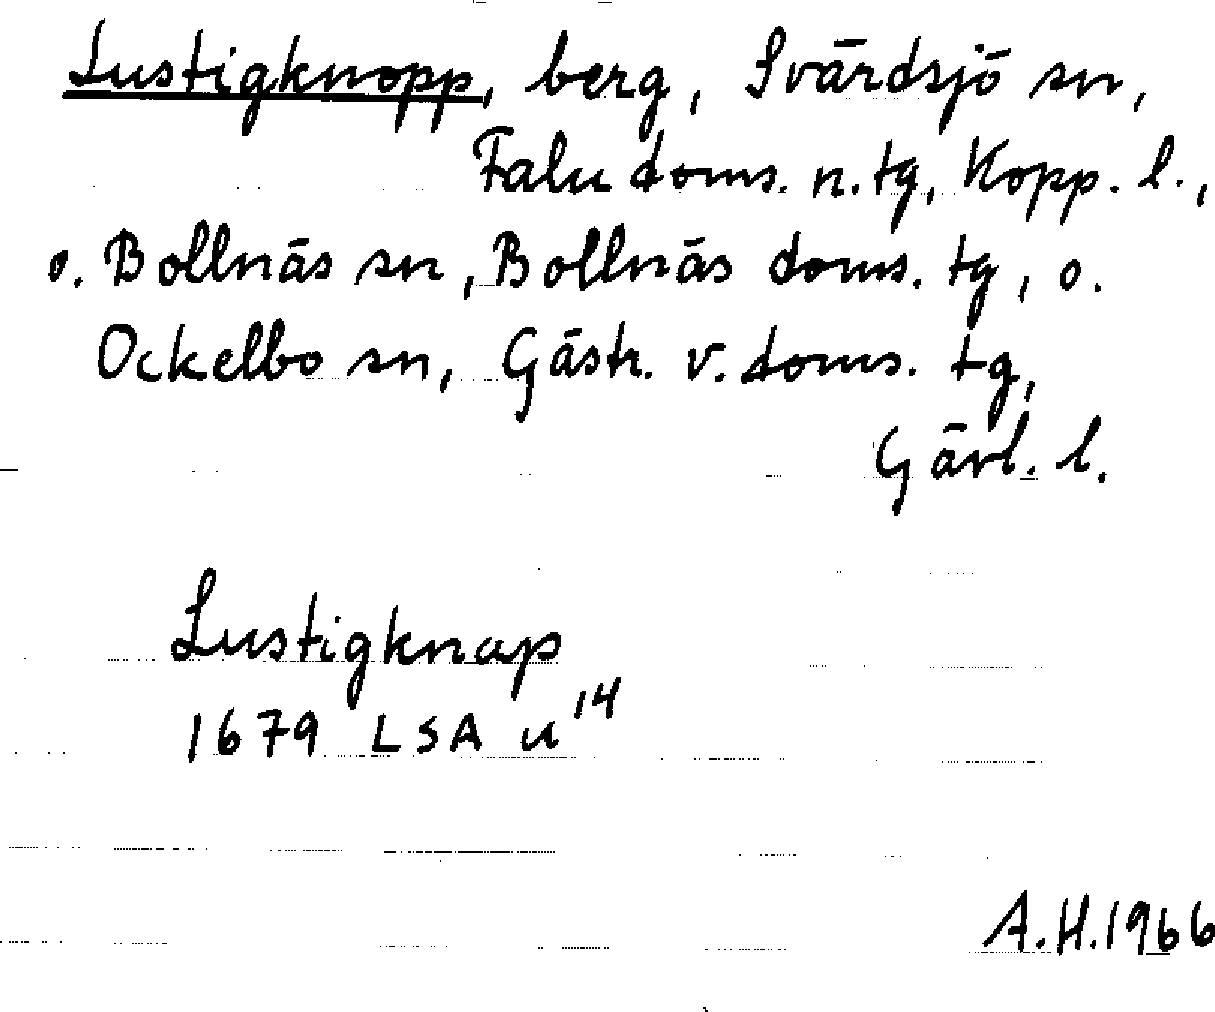 Lustigknopp, berg, Svärdsjö sn,
Falu doms. n. tg, Kopp. l.,
o. Bollnäs sn, Bollnäs doms. tg, o.
Ockelbo sn, Gästr. v. doms. tg,
Gävl. l.
Lustigknap
1679 LSA u¹⁴
A.H. 1966